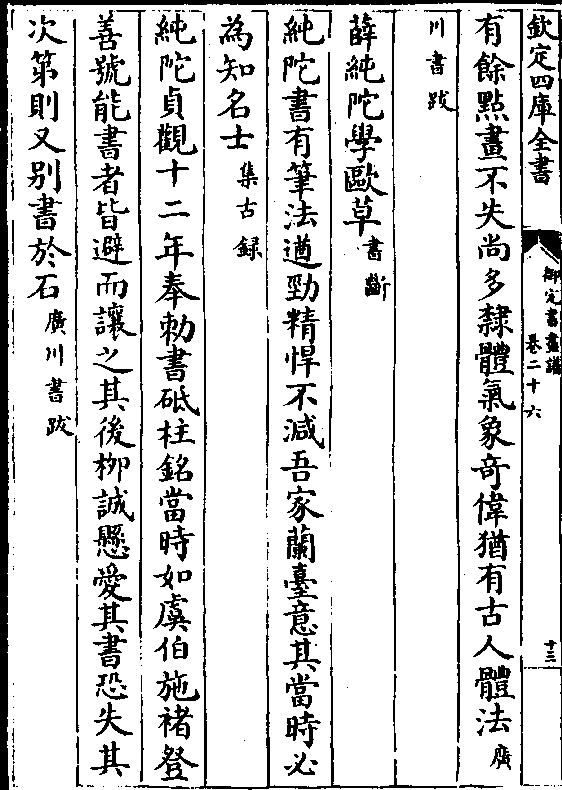 欽定四庫全書
御定書畫譜
卷二十六
十三
有餘點畫不失尚多隸體氣象奇偉猶有古人體法廣
川書跋
薛純陀學歐草書斷
純陀書有筆法遒勁精悍不減吾家蘭臺意其當時必
為知名士集古録
純陀貞觀十二年奉勅書砥柱銘當時如虞伯施禇登
善號能書者皆避而讓之其後栁誠懸愛其書恐失其
次第則又别書於石廣川書跋